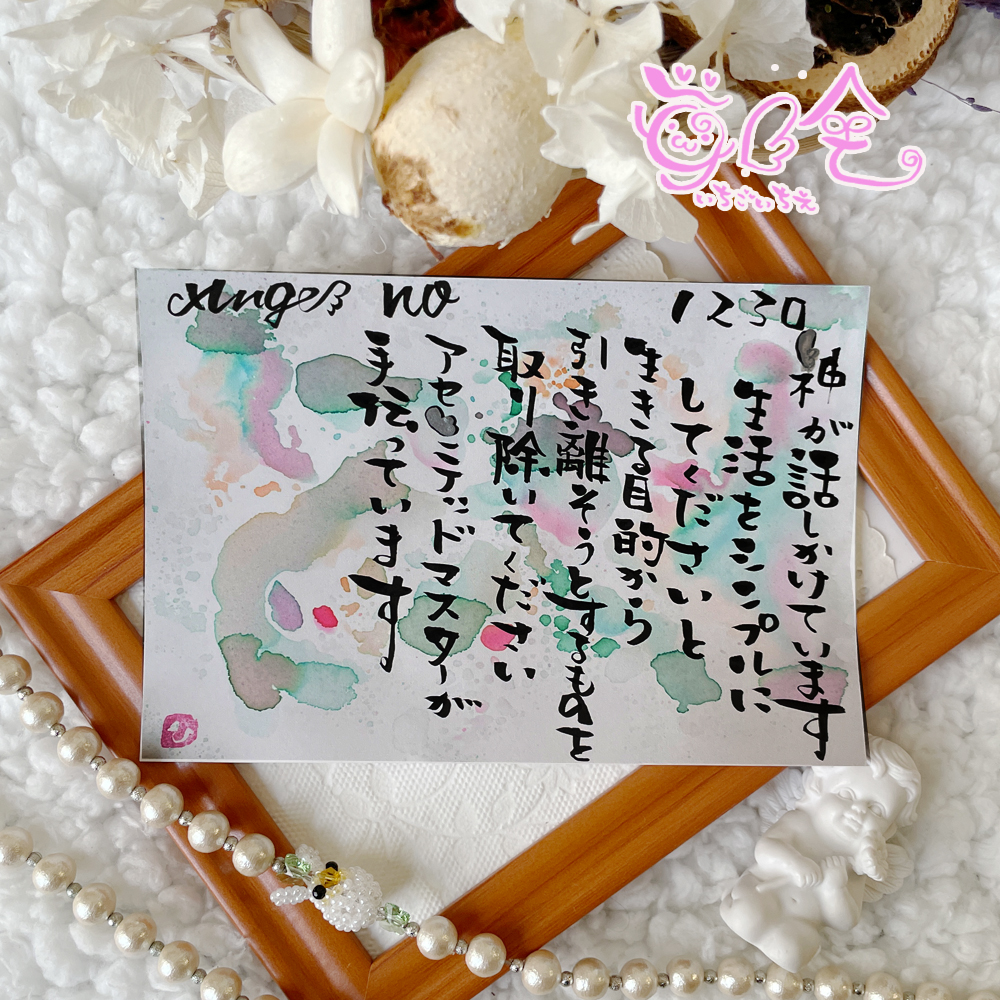 Angel no 1230
神が話しかけています
生活をシンプルに
してくださいと
生きる目的から
引き離そうとするものを
取り除いてください
アセンテッドマスターが
手伝っています
いちごいちえ